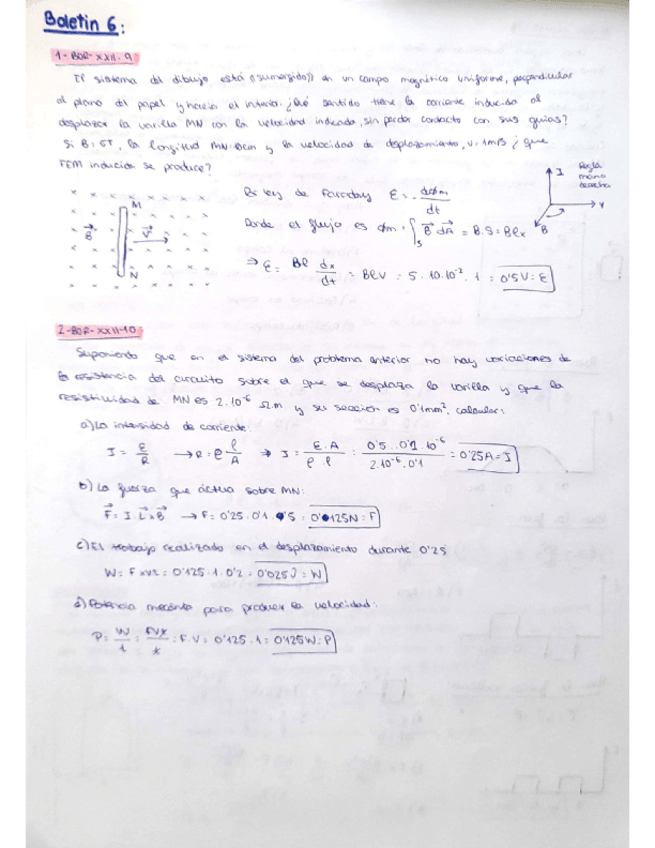 Boletín 6:
1-BOR-XXII-9
El sistema del dibujo está (sumergido) en un campo magnético uniforme, perpendicular
al plano del papel y hacia el interior. ¿Qué sentido tiene la corriente inducida al
desplazar la varilla MN con la velocidad indicada, sin perder contacto con sus guías?
Si B=5T, la longitud MN 10cm y la velocidad de desplazamiento, v=1m/s ¿que
FEM inducida se produce?
Regla
mano
derecha
I
V
B
M
B⃗
V⃗
N
ley de Faraday ε = - dϕm/dt
Donde el flujo es ϕm = ∫s B⃗ dA⃗ = B.S = Bℓx
⇒ ε = Bℓ dx/dt = BℓV = 5 · 10·10⁻² · 1 = 0'5V = ε
2-BOR-XXII-10
Suponiendo que en el sistema del problema anterior no hay variaciones de
la resistencia del circuito sobre el que se desplaza la varilla y que la
resistividad de MN es 2·10⁻⁶ Ω.m y su sección es 0'1mm², calcular:
a) La intensidad de corriente:
I = ε/R → R = ρ ℓ/A ⇒ I = ε·A/ρ·ℓ = 0'5 · 0'1 · 10⁻⁶/2·10⁻⁶ · 0'1 = 0'25A = I
b) La fuerza que actúa sobre MN:
F⃗ = I · L⃗ x B⃗ → F = 0'25 · 0'1 · 5 = 0'125N = F
c) El trabajo realizado en el desplazamiento durante 0'2s
W = F · v · t = 0'125 · 1 · 0'2 = 0'025J = W
d) Potencia mecánica para producir la velocidad:
P = W/t = F·V·t/t = F.V = 0'125 · 1 = 0'125W = P